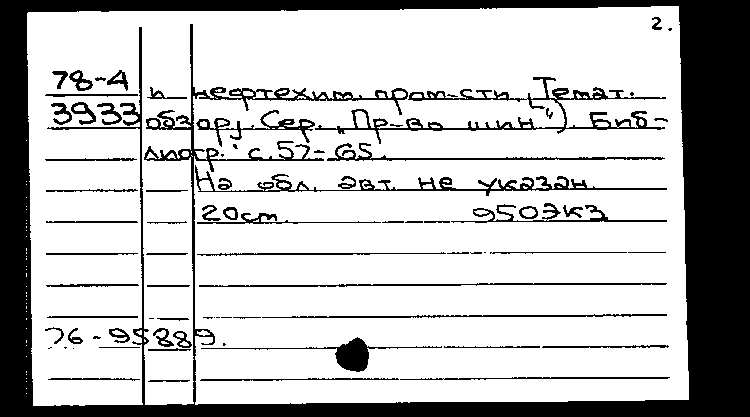 2.
78-4
3933
и нефтехим. пром-сти. [Темат.
обзор]. Сер. „Пр-во шин"). Биб-
лиогр. с. 57-65.
На обл. авт. не указан.
20 см. 950 экз
76-95889.